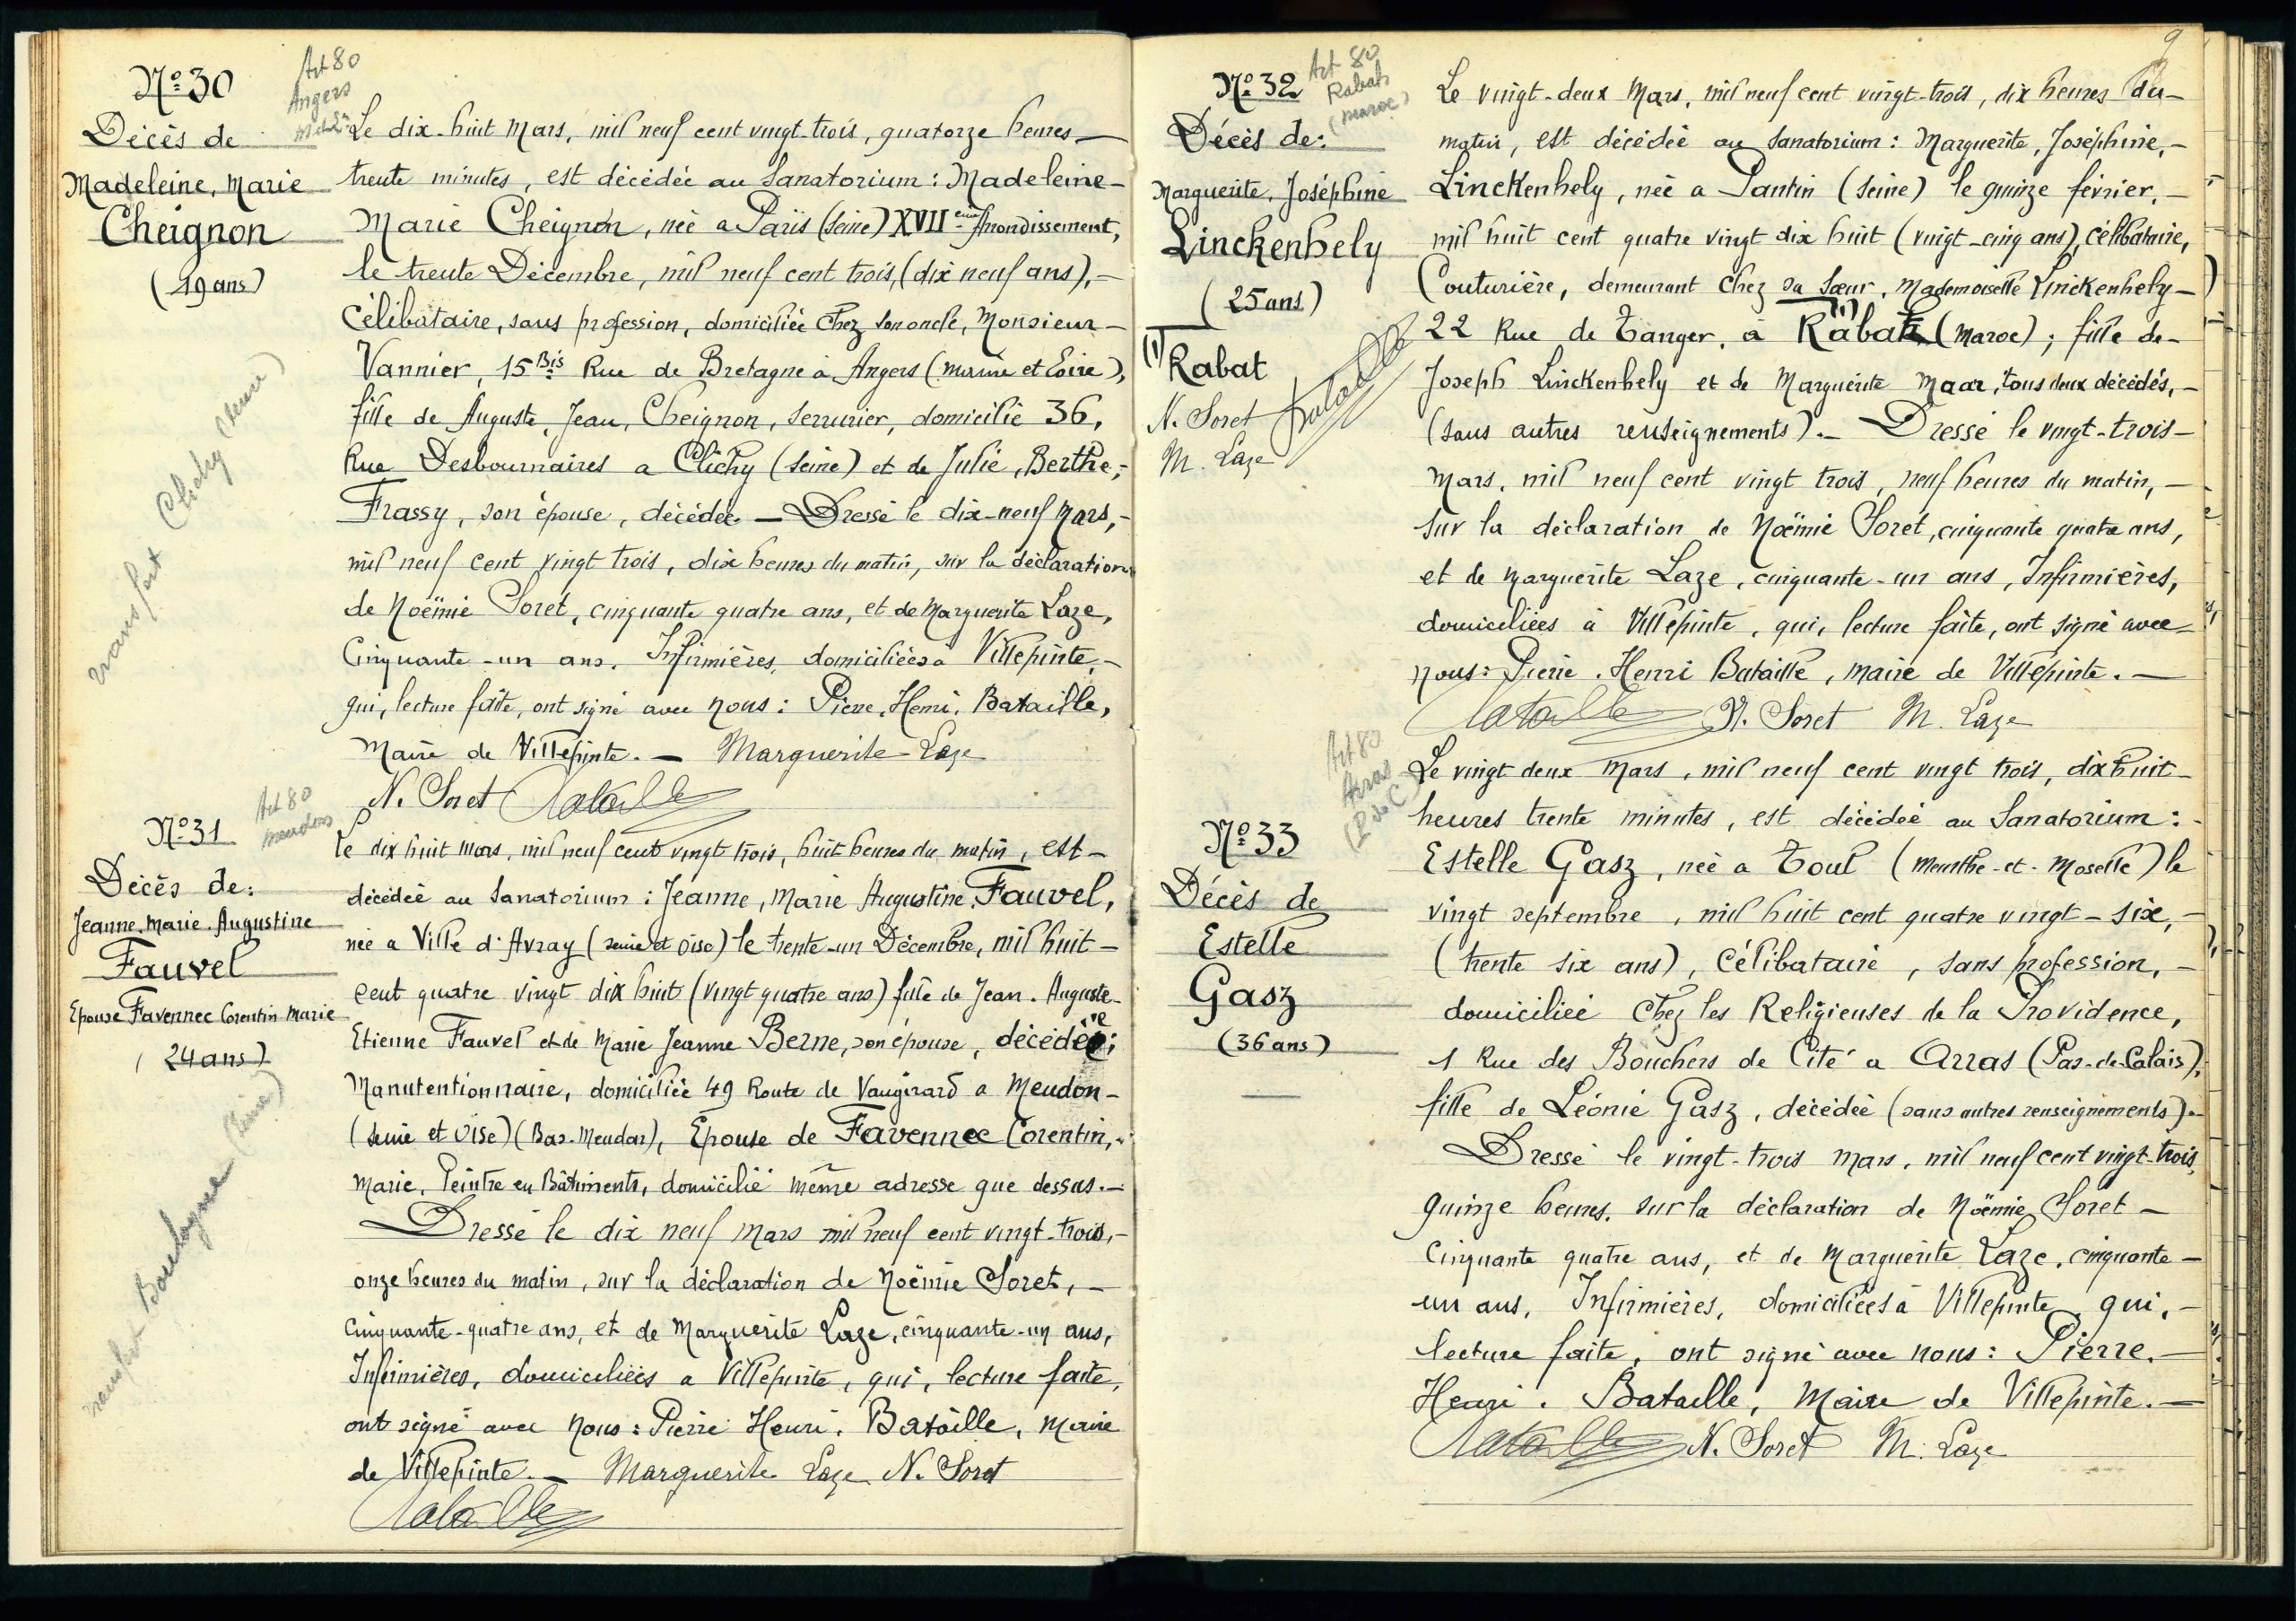 N° 30
Art 80
Angers
Décès de
Madeleine, Marie
Cheignon
(19 ans)
transfert Clichy (Seine)
Le dix-huit Mars, mil neuf cent vingt-trois, quatorze heures —
trente minutes, est décédée au Sanatorium : Madeleine -
Marie Cheignon, née a Paris (Seine) XVII ème Arrondissement,
le trente Décembre, mil neuf cent trois, (dix neuf ans), —
Célibataire, sans profession, domiciliée chez son oncle, Monsieur —
Vannier, 15 Bis Rue de Bretagne à Angers (Maine et Loire),
fille de Auguste, Jean, Cheignon, Serrurier, domicilié 36,
Rue Desbournaires a Clichy (Seine) et de Julie, Berthe, -
Frassy, son épouse, décédée. — Dressé le dix-neuf Mars, -
mil neuf cent vingt trois, dix heures du matin, sur la déclaration
de Noëmie Soret, cinquante quatre ans, et de Marguerite Laze,
Cinquante-un ans, Infirmières, domiciliées à Villepinte, -
qui, lecture faite, ont signé avec nous : Pierre, Henri, Bataille,
Maire de Villepinte. — Marguerite Laze
N. Soret Bataille
N° 31
Art 80
Meudon
Décès de :
Jeanne, Marie, Augustine
Fauvel
Epouse Favennec Corentin Marie
(24 ans)
transfert Boulogne (Seine)
Le dix huit Mars, mil neuf cent vingt trois, huit heures du matin, est —
décédée au Sanatorium : Jeanne, Marie Augustine, Fauvel,
née a Ville d'Avray (Seine et Oise) le trente-un Décembre, mil huit —
cent quatre vingt dix huit (vingt quatre ans) fille de Jean. Auguste -
Etienne Fauvel et de Marie Jeanne Berne, son épouse, décédée ;
Manutentionnaire, domiciliée 49 Route de Vaugirard a Meudon -
(Seine et Oise) (Bas-Meudon), Epouse de Favennec Corentin, -
Marie, Peintre en Bâtiments, domicilié même adresse que dessus. —
Dressé le dix neuf Mars mil neuf cent vingt-trois, -
onze heures du matin, sur la déclaration de Noëmie Soret, —
Cinquante-quatre ans, et de Marguerite Laze, cinquante-un ans,
Infirmières, domiciliées a Villepinte, qui, lecture faite,
ont signé avec nous : Pierre Henri, Bataille, Maire
de Villepinte. — Marguerite Laze N. Soret
Bataille
9
N° 32
Art 80
Rabat
(Maroc)
Décès de :
Marguerite, Joséphine
Linckenhely
(25 ans)
(1) Rabat
N. Soret Bataille
M. Laze
Le vingt-deux Mars, mil neuf cent vingt-trois, dix heures du —
matin, est décédée au Sanatorium : Marguerite, Joséphine, -
Linckenhely, née a Pantin (Seine) le quinze février, —
mil huit cent quatre vingt dix huit (vingt-cinq ans), célibataire,
Couturière, demeurant chez sa Sœur, Mademoiselle Linckenhely —
22 Rue de Tanger, à Rabat (1) (Maroc) ; fille de —
Joseph Linckenhely et de Marguerite Maar, tous deux décédés, —
(sans autres renseignements). — Dressé le vingt-trois —
Mars, mil neuf cent vingt trois, neuf heures du matin, —
sur la déclaration de Noëmie Soret, cinquante quatre ans,
et de Marguerite Laze, cinquante-un ans, Infirmières,
domiciliées à Villepinte, qui, lecture faite, ont signé avec —
nous : Pierre, Henri Bataille, Maire de Villepinte. —
Bataille N. Soret M. Laze
Art 80
Arras
(P. de C)
N° 33
Décès de
Estelle
Gasz
(36 ans)
Le vingt deux Mars, mil neuf cent vingt trois, dix huit —
heures trente minutes, est décédée au Sanatorium : -
Estelle Gasz, née a Toul (Meurthe-et-Moselle) le
vingt septembre, mil huit cent quatre vingt-six, —
(trente six ans), Célibataire, sans profession, —
domiciliée Chez les Religieuses de la Providence,
1 Rue des Bouchers de Cité a Arras (Pas-de-Calais),
fille de Léonie Gasz, décédée (sans autres renseignements). -
Dressé le vingt-trois Mars, mil neuf cent vingt-trois,
quinze heures, sur la déclaration de Noëmie Soret —
Cinquante quatre ans, et de Marguerite Laze, cinquante —
un ans, Infirmières, domiciliées à Villepinte, qui, —
lecture faite, ont signé avec nous : Pierre, —
Henri, Bataille, Maire de Villepinte. —
Bataille N. Soret M. Laze